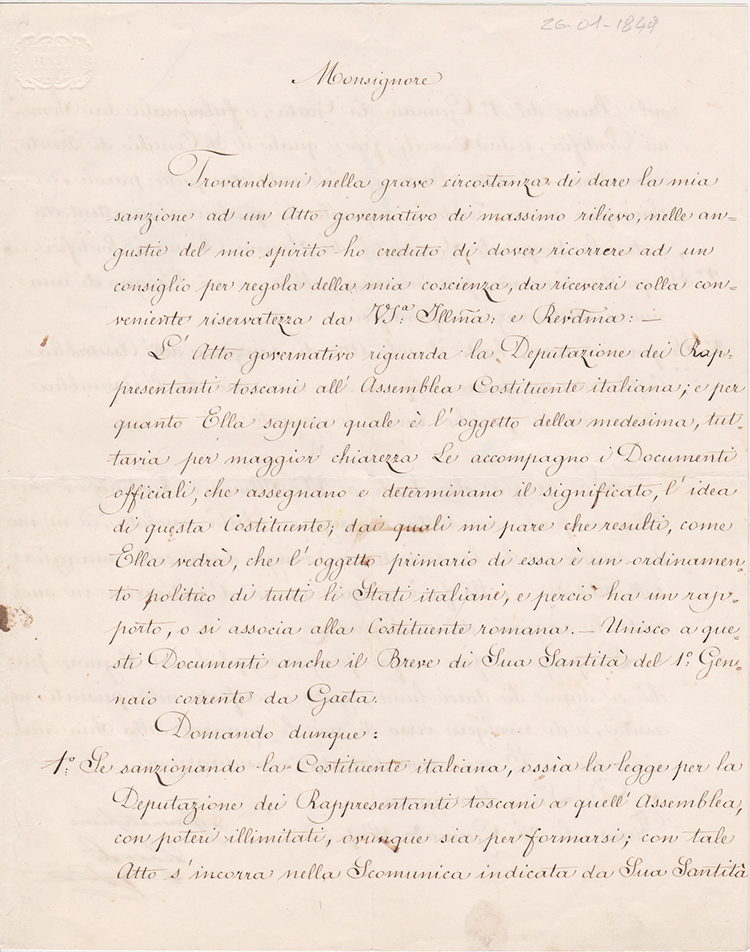 26-01-1849
Monsignore
Trovandomi nella grave circostanza di dare la mia
sanzione ad un Atto governativo di massimo rilievo, nelle an=
gustie del mio spirito ho creduto di dover ricorrere ad un
consiglio per regola della mia coscienza, da riceversi colla con=
veniente riservatezza da VS.ª Illma: e Revdma: —
L' Atto governativo riguarda la Deputazione dei Rap=
presentanti toscani all' Assemblea Costituente italiana; e per
quanto Ella sappia quale è l' oggetto della medesima, tut=
tavia per maggior chiarezza Le accompagno i Documenti
officiali, che assegnano e determinano il significato, l' idea
di questa Costituente; dai quali mi pare che resulti, come
Ella vedrà, che l' oggetto primario di essa è un ordinamen=
to politico di tutti li Stati italiani, e perciò ha un rap=
porto, o si associa alla Costituente romana. — Unisco a que=
sti Documenti anche il Breve di Sua Santità del 1.º Gen=
naio corrente da Gaeta.
Domando dunque:
1.º Se sanzionando la Costituente italiana, ossia la legge per la
Deputazione dei Rappresentanti toscani a quell' Assemblea,
con poteri illimitati, ovunque sia per formarsi; con tale
Atto s' incorra nella Scomunica indicata da Sua Santità